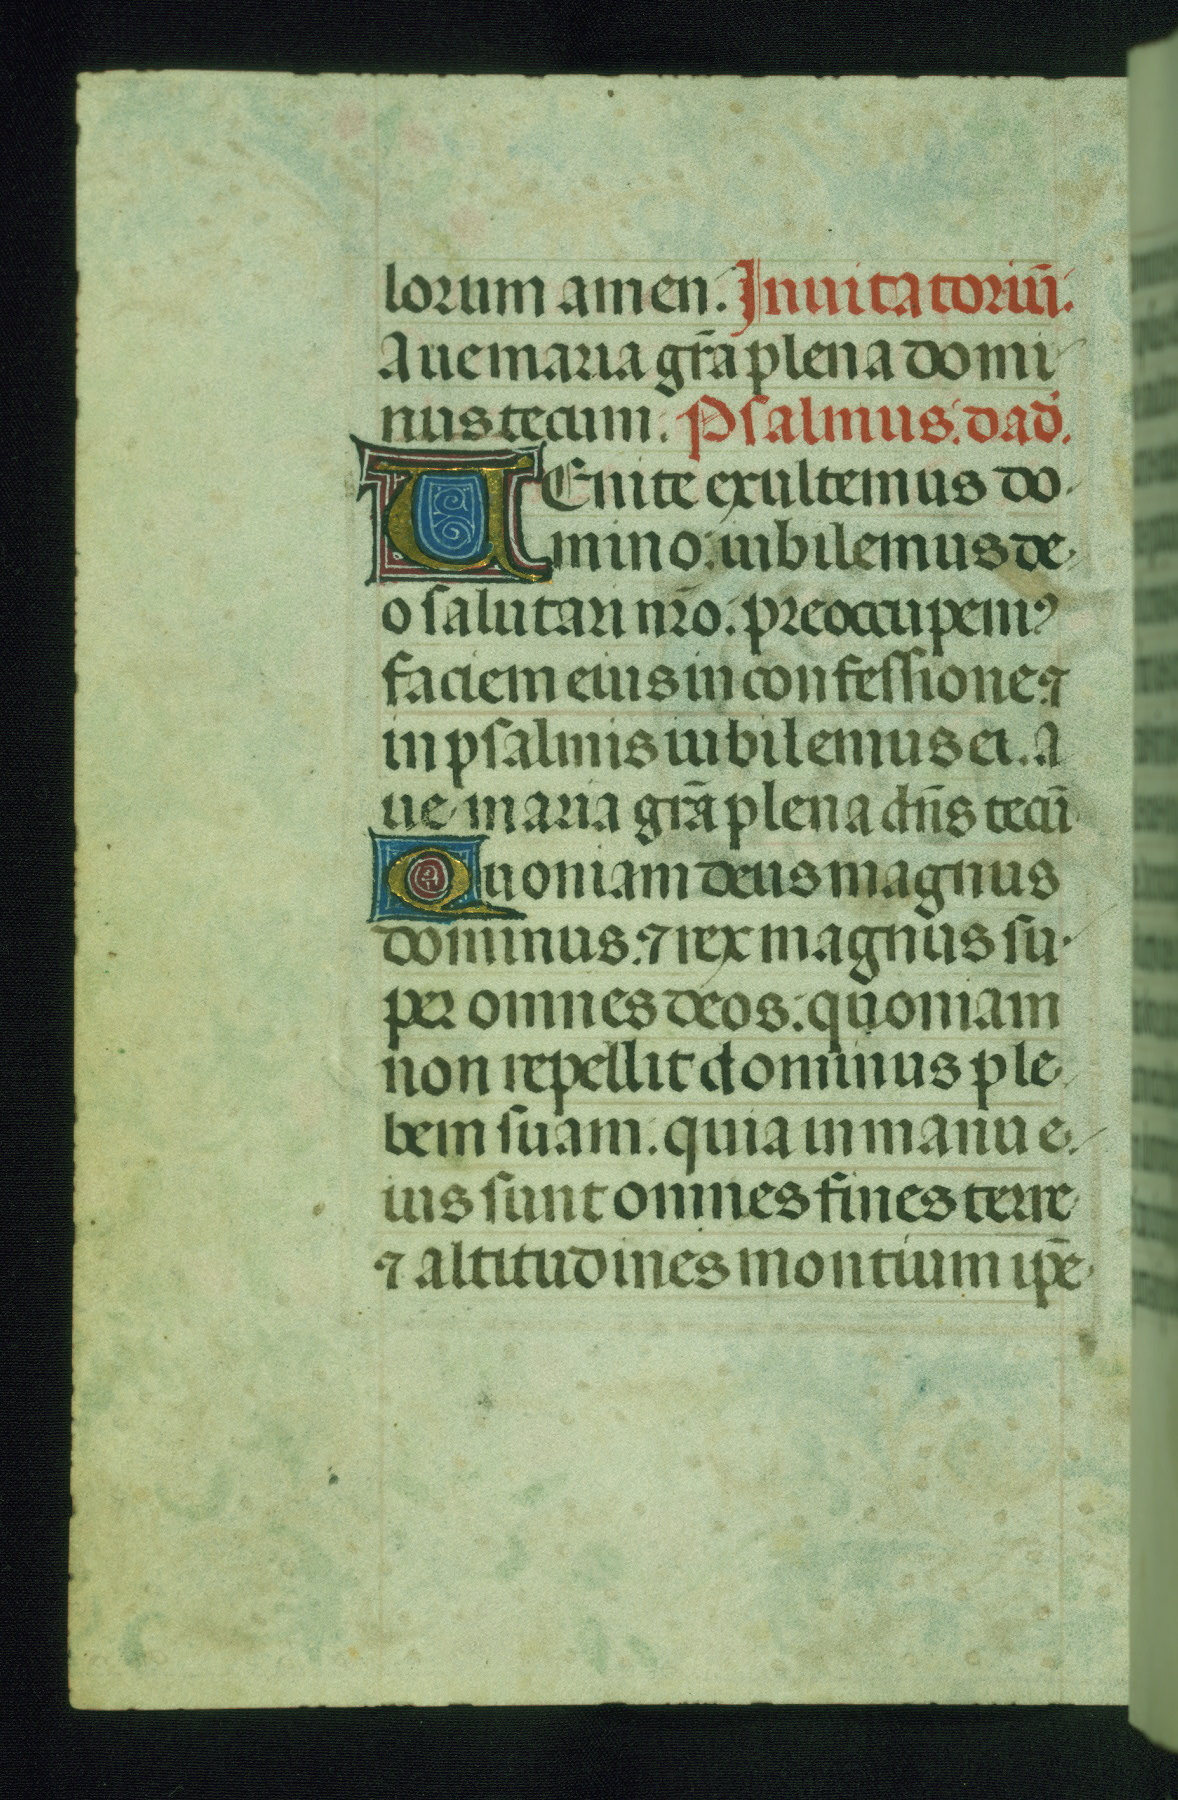 lorum amen. Inuitatoriū.
Aue maria gr̄a plena domi
nus tecum. Psalmus. dad̄.
UEnite exultemus do
mino: iubilemus de
o salutari nr̄o. preoccupemꝰ
faciem eius in confessione ⁊
in psalmis iubilemus ei. A
ue maria gr̄a plena dn̄s tecū
Quoniam deus magnus
dominus. ⁊ rex magnus su
per omnes deos: quoniam
non repellit dominus ple
bem suam. quia in manu e
ius sunt omnes fines terre
⁊ altitudines montium ip̄e